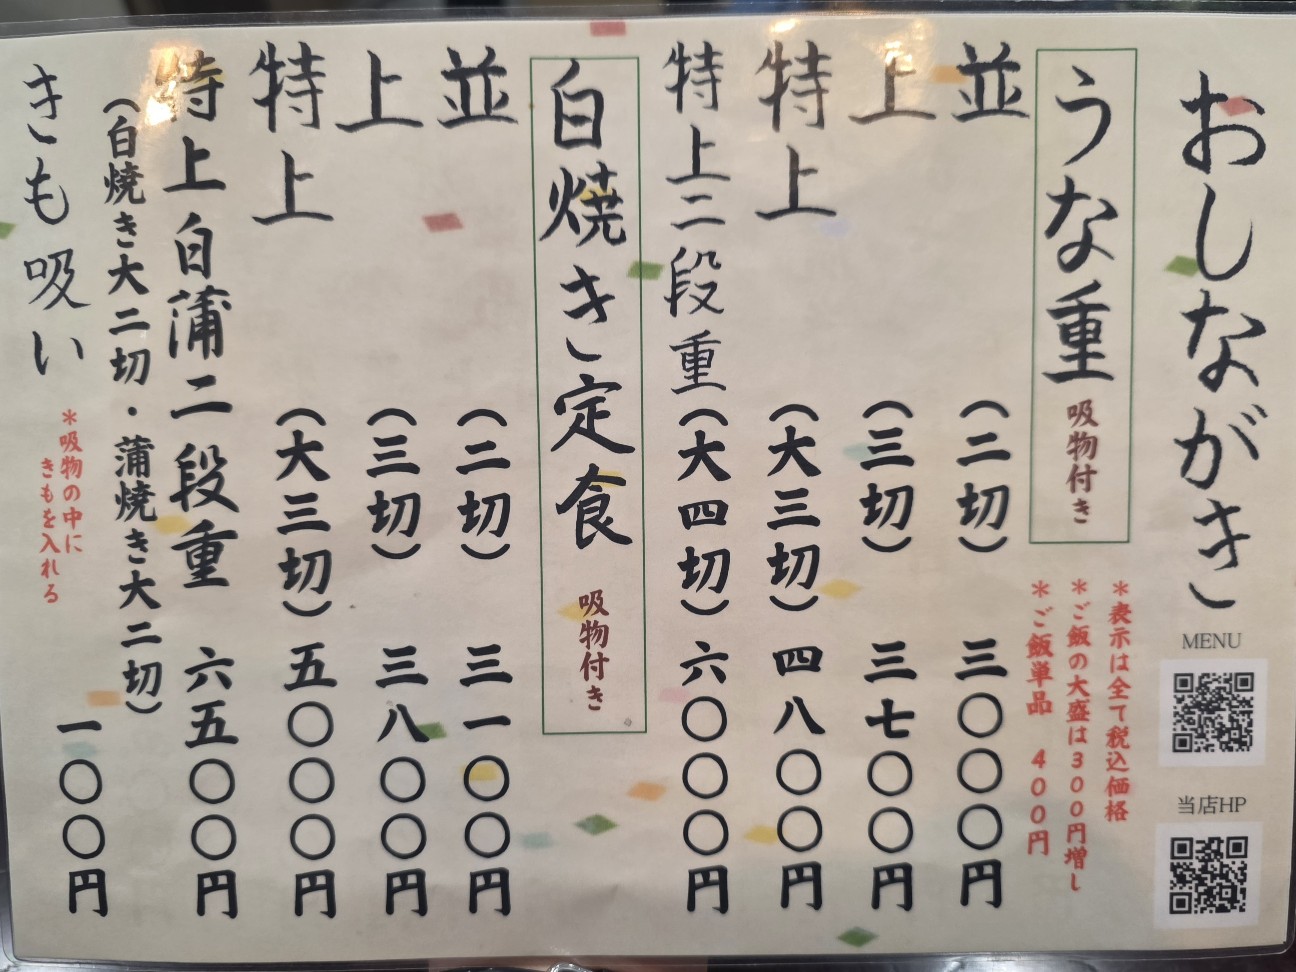 おしながき
MENU
当店HP
うな重 吸物付き
＊表示は全て税込価格
＊ご飯の大盛は３００円増し
＊ご飯単品 ４００円
並 （二切） 三〇〇〇円
上 （三切） 三七〇〇円
特上 （大三切） 四八〇〇円
特上二段重（大四切） 六〇〇〇円
白焼き定食 吸物付き
並 （二切） 三一〇〇円
上 （三切） 三八〇〇円
特上 （大三切） 五〇〇〇円
特上白蒲二段重 六五〇〇円
（白焼き大二切・蒲焼き大二切）
きも吸い 一〇〇円
＊吸物の中に
きもを入れる